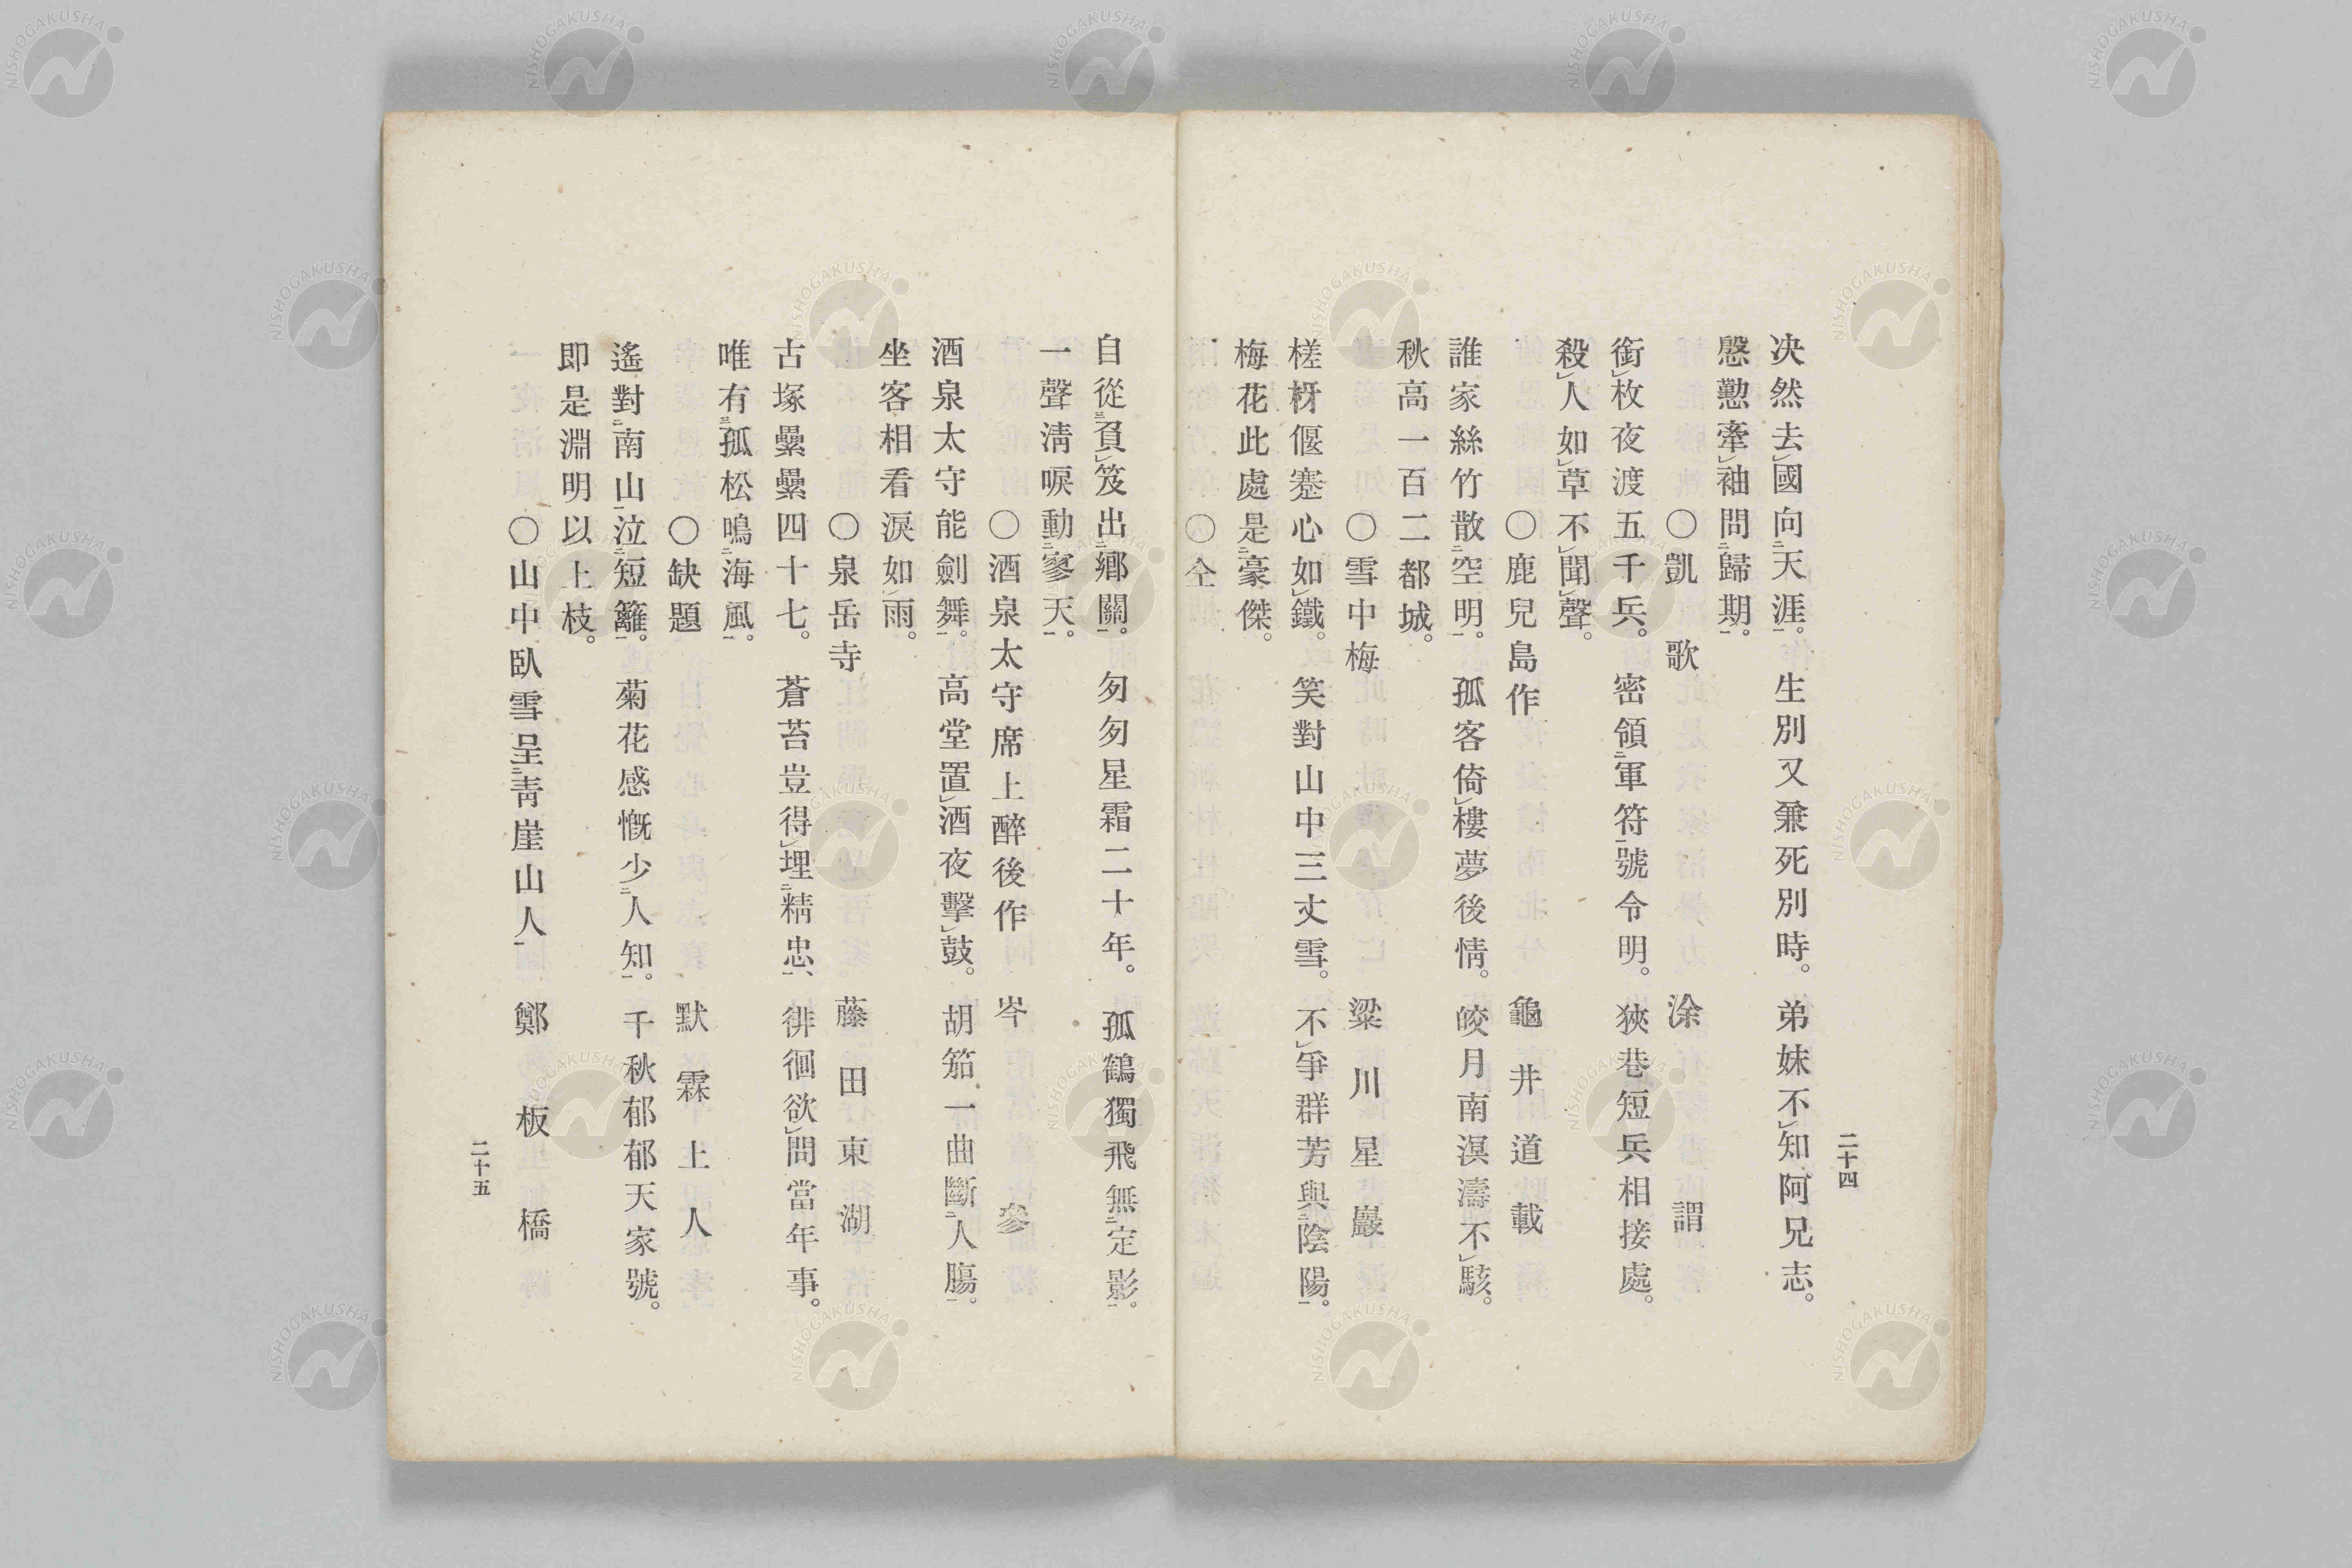 二十四
决然去㆑國向㆓天涯㆒。生別又兼死別時。弟妹不㆑知阿兄志。
慇懃牽㆑袖問㆓歸期㆒。
〇凱歌 涂謂
銜㆑枚夜渡五千兵。密領㆓軍符㆒號令明。狹巷短兵相接處。
殺㆑人如㆑草不㆑聞㆑聲。
〇鹿兒島作 龜井道載
誰家絲竹散㆓空明㆒。孤客倚㆑樓夢後情。皎月南溟濤不㆑駭。
秋高一百二都城。
〇雪中梅 梁川星巖
槎枒偃蹇心如㆑鐵。笑對山中三丈雪。不㆑爭群芳與㆓陰陽㆒。
梅花此處是㆓豪傑。
〇仝
自從㆔負㆑笈出㆓鄕關㆒。匆匆星霜二十年。孤鶴獨飛無㆓定影㆒。
一聲淸唳動㆓寥天㆒。
〇酒泉太守席上醉後作 岑參
酒泉太守能劍舞㆒。高堂置㆑酒夜擊㆑鼓。胡笳一曲斷㆓人膓㆒。
坐客相看淚如㆑雨。
〇泉岳寺 藤田東湖
古塚纍纍四十七。蒼苔豈得㆑埋㆓精忠㆒、徘徊欲㆑問當年事。
唯有㆔孤松鳴㆓海風㆒。
〇缺題 默霖上人
遙對㆓南山㆒泣㆓短籬㆒。菊花感慨少㆓人知㆒。千秋郁郁天家號。
即是淵明以上枝。
〇山中臥雪呈㆓靑崖山人㆒ 鄭板橋
二十五
NISHOGAKUSHA